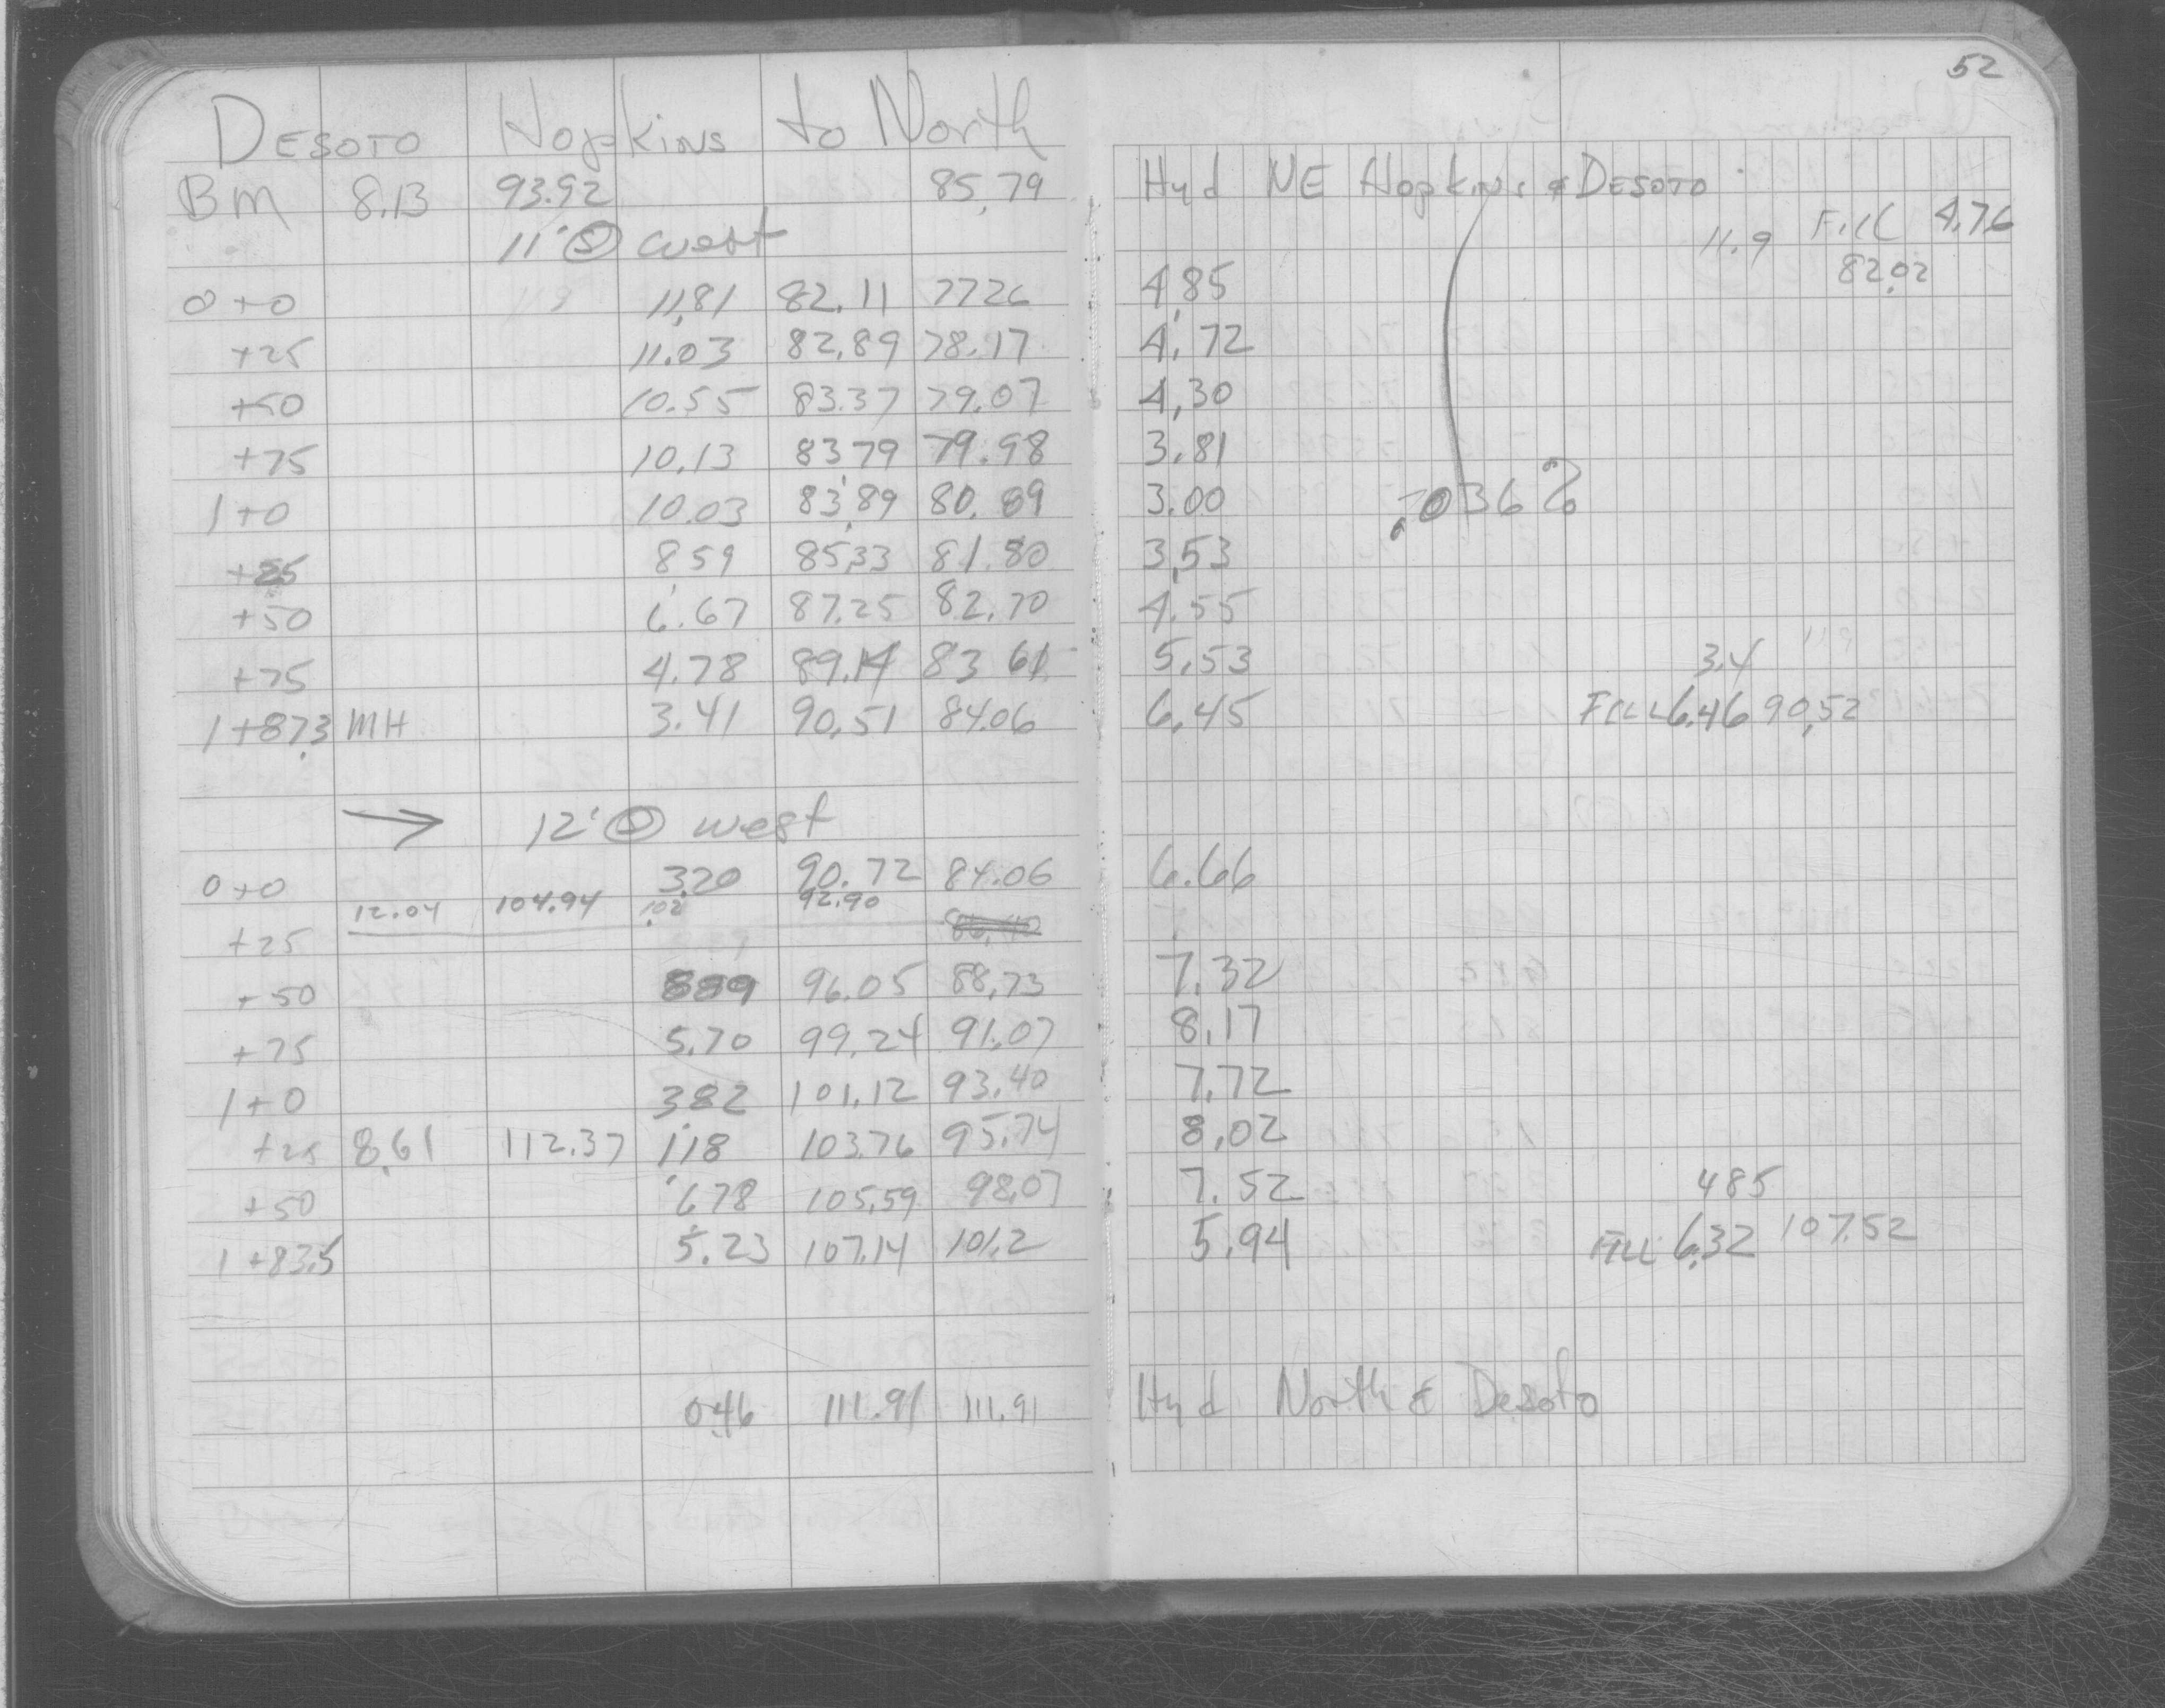 52
DESOTO Hopkins to North
BM 8.13 93.92 85.79 Hyd NE Hopkins & DESOTO
11' Ⓢ west 11.9 Fill 4.76
82.02
0+0 11.81 82.11 77.26 4.85
+25 11.03 82.89 78.17 4.72
+50 10.55 83.37 79.07 4.30
+75 10.13 83.79 79.98 3.81
1+0 10.03 83.89 80.89 3.00 .036%
+25 8.59 85.33 81.80 3.53
+50 6.67 87.25 82.70 4.55
+75 4.78 89.14 83.61 5.53 3.4
1+87.3 MH 3.41 90.51 84.06 6.45 FILL 6.46 90.52
→ 12' Ⓢ west
0+0 3.20 90.72 84.06 6.66
12.04 104.94 1.02 92.90
+25
+50 8.89 96.05 88.73 7.32
+75 5.70 99.24 91.07 8.17
1+0 3.82 101.12 93.40 7.72
+25 8.61 112.37 1.18 103.76 95.74 8.02
+50 6.78 105.59 98.07 7.52 4.85
1+83.5 5.23 107.14 101.2 5.94 FILL 6.32 107.52
0.46 111.91 111.91 Hyd North & Desoto